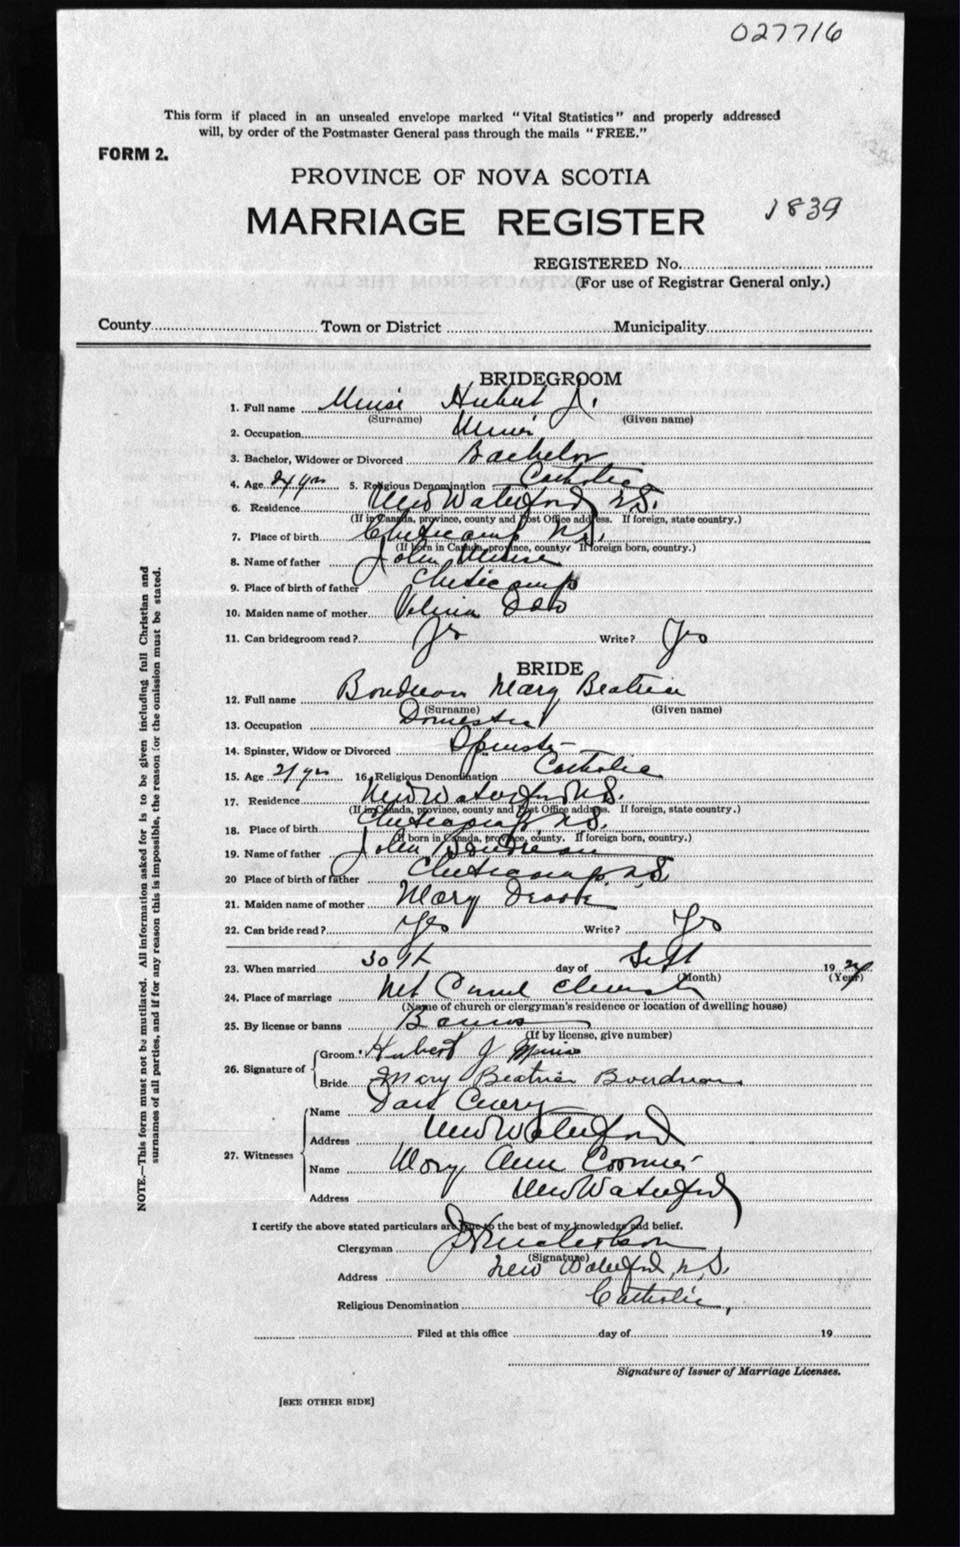 027716
This form if placed in an unsealed envelope marked "Vital Statistics" and properly addressed
will, by order of the Postmaster General pass through the mails "FREE."
FORM 2.
PROVINCE OF NOVA SCOTIA
MARRIAGE REGISTER 1839
REGISTERED No.
(For use of Registrar General only.)
County Town or District Municipality
BRIDEGROOM
1. Full name Muise Hubert J.
(Surname) (Given name)
2. Occupation Miner
3. Bachelor, Widower or Divorced Bachelor
4. Age 24 yrs 5. Religious Denomination Catholic
6. Residence New Waterford N.S.
(If in Canada, province, county and Post Office address. If foreign, state country.)
7. Place of birth Cheticamp N.S.
(If born in Canada, province, county. If foreign born, country.)
8. Name of father John Muise
9. Place of birth of father Cheticamp
10. Maiden name of mother
11. Can bridegroom read? Yes Write? Yes
BRIDE
12. Full name Boudreau Mary Beatrice
(Surname) (Given name)
13. Occupation Domestic
14. Spinster, Widow or Divorced Spinster
15. Age 21 yrs 16. Religious Denomination Catholic
17. Residence New Waterford N.S.
(If in Canada, province, county and Post Office address. If foreign, state country.)
18. Place of birth Cheticamp, N.S.
(If born in Canada, province, county. If foreign born, country.)
19. Name of father John Boudreau
20 Place of birth of father Cheticamp, N.S.
21. Maiden name of mother Mary
22. Can bride read? Yes Write? Yes
23. When married 30th day of Sept 19
(Month) (Year)
24. Place of marriage Mt Carmel Church
(Name of church or clergyman's residence or location of dwelling house)
25. By license or banns Banns
(If by license, give number)
26. Signature of Groom Hubert J
Bride Mary Beatrice Boudreau
27. Witnesses Name
Address New Waterford
Name Mary Ann Cormier
Address New Waterford
I certify the above stated particulars are true to the best of my knowledge and belief.
Clergyman
(Signature)
Address New Waterford, N.S.
Religious Denomination Catholic,
Filed at this office day of 19
Signature of Issuer of Marriage Licenses.
[SEE OTHER SIDE]
NOTE.—This form must not be mutilated. All information asked for is to be given including full Christian and
surnames of all parties, and if for any reason this is impossible, the reason for the omission must be stated.